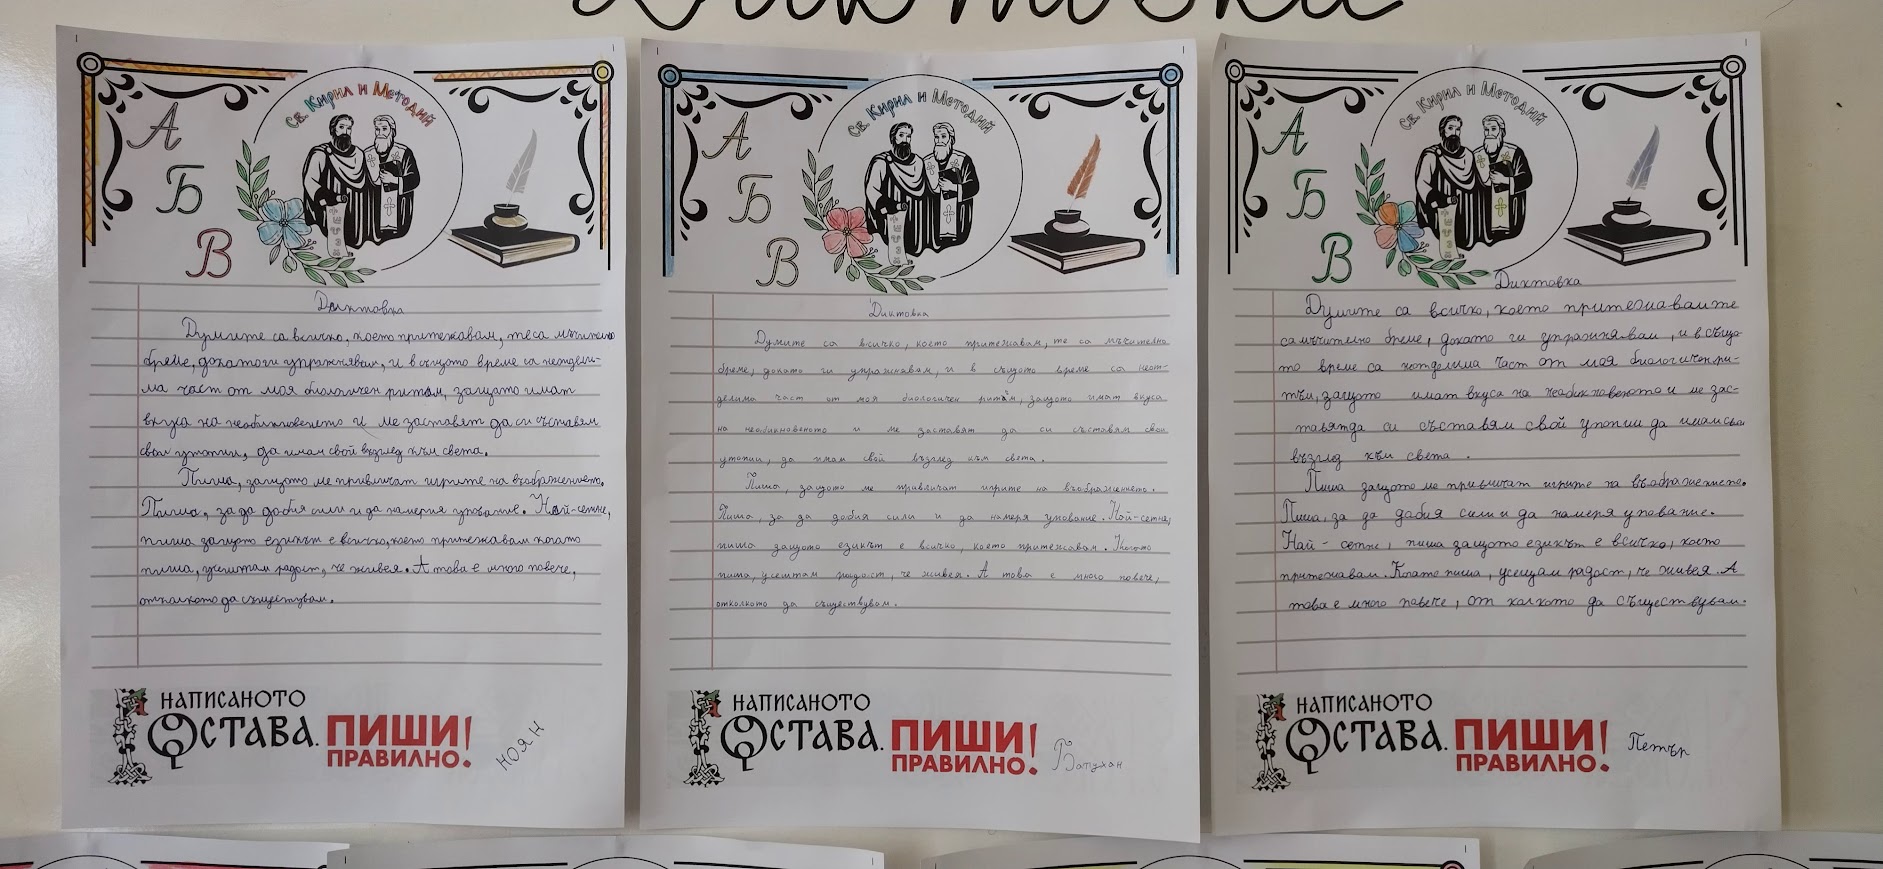 Диктовка
Св. Кирил и Методий
А
Б
В
Диктовка
Думите са всичко, което притежавам, те са мъчително
бреме, докато ги упражнявам, и в същото време са неотдели-
ма част от моя биологичен ритъм, защото имат
вкуса на необикновеното и ме заставят да си съставям
свои утопии, да имам свой възглед към света.
Пиша, защото ме привличат игрите на въображението.
Пиша, за да добия сили и да намеря упование. Най-сетне,
пиша защото езикът е всичко, което притежавам когато
пиша, усещам радост, че живея. А това е много повече,
отколкото да съществувам.
НАПИСАНОТО
ОСТАВА. ПИШИ
ПРАВИЛНО!
НОЯН
Св. Кирил и Методий
А
Б
В
Диктовка
Думите са всичко, което притежавам, те са мъчително
бреме, докато ги упражнявам, и в същото време са неот-
делима част от моя биологичен ритъм, защото имат вкуса
на необикновеното и ме заставят да си съставям свои
утопии, да имам свой възглед към света.
Пиша, защото ме привличат игрите на въображението.
Пиша, за да добия сили и да намеря упование. Най-сетне,
пиша защото езикът е всичко, което притежавам. Когато
пиша, усештам радост, че живея. А това е много повече,
отколкото да съществувам.
НАПИСАНОТО
ОСТАВА. ПИШИ
ПРАВИЛНО!
Батухан
Св. Кирил и Методий
А
Б
В
Диктовка
Думите са всичко, което притежаваите
са мъчително бреме, докато ги упражнявам, и в също-
то време са неотделима част от моя биологичен ри-
тъм, защото имат вкуса на необикновеното и ме зас-
тавят да си съставям свой утопии да имам свои
възглед към света.
Пиша защото ме привличат игрите на въображението.
Пиша, за да дабия сили и да намеря упование.
Най-сетне, пиша защото езикът е всичко, което
притежавам. Когато пиша, усещам радост, че живея. А
това е много повече, от колкото да съществувам.
НАПИСАНОТО
ОСТАВА. ПИШИ
ПРАВИЛНО!
Петър